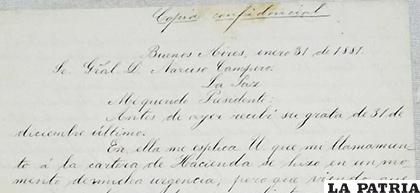 Copia confidencial
Buenos Aires, enero 31 de 1881.
Sr. Gral. D. Narciso Campero.
La Paz
Mi querido Presidente:
Antes de ayer recibí su grata de 31 de
diciembre último.
En ella me esplica U que mi llamamien-
to á la cartera de Hacienda se hizo en un mo-
mento de mucha urgencia; pero que viendo que
LA PATRIA